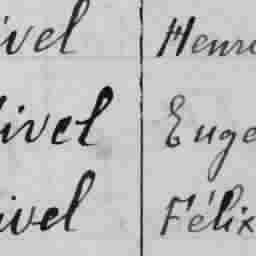 ivel Henri
ivel Euge
ivel Félix